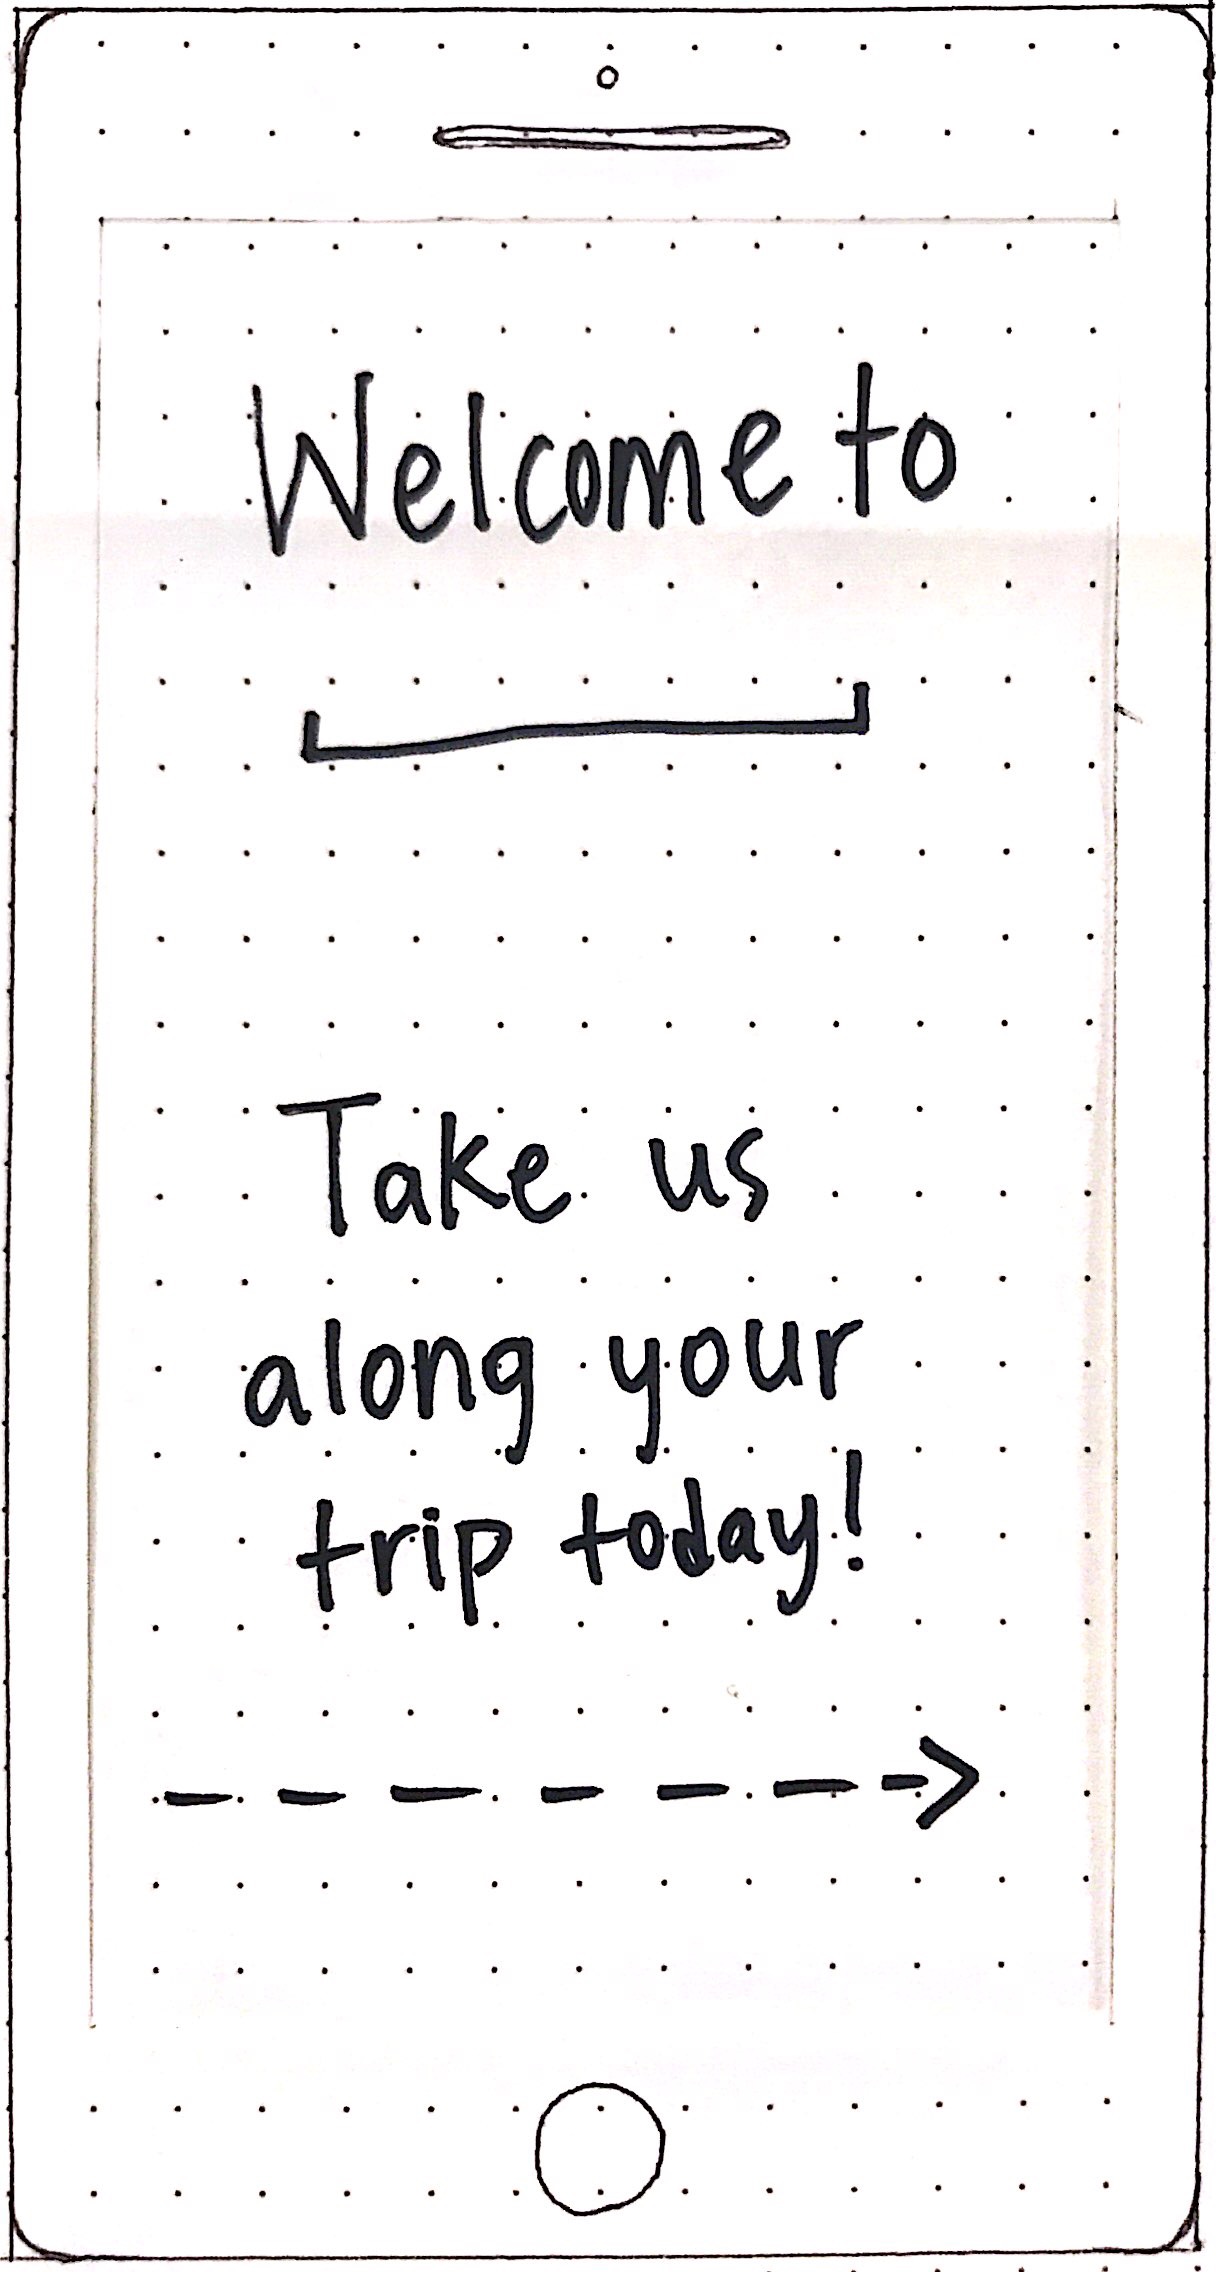 Welcome to
Take us
along your
trip today!